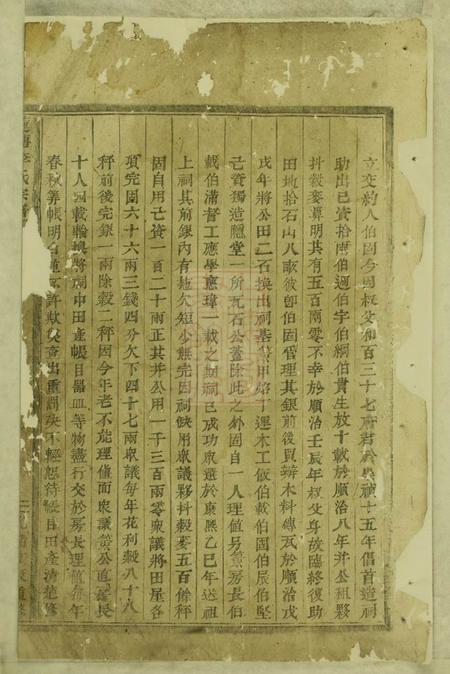 立交約人伯固今因叔父和百三十七府君於崇禎十五年倡首造祠
助出己資拾兩伯迥伯宇伯綱伯貴生放十載於順治八年并公租夥
抖穀麥算明共有五百兩零不幸於順治壬辰年叔父身故臨終復助
田地拾石山八畝彼卽伯固管理其銀前後買辦木料磚瓦於順治戊
戌年將公田二石換出祠基 甲始于運木工伋伯載伯固伯辰伯堅
己資獨造廳堂一所瓦石公蓋除此之外固自一人理值另 房長伯
載伯滿督工應學應瑋一載之期祠已成功衆選於康熙乙巳年送祖
上祠其前銀內有拖欠短少無完因祠缺用衆議夥抖穀麥五百餘秤
固自用己資一百二十兩正共并公用一千三百兩零衆議將田屋各
項完固六十六兩三錢四分欠下四十七兩衆議每年花利穀八十八
秤前後完銀一兩除穀二秤固今年老不能理值面衆議 公直 長
十人 載輪換將祠中田產帳目器皿等物盡行交於房長理值每年
春秋筭帳明白 許欺 查出重罰決不輕恕待 帳目田產清楚修